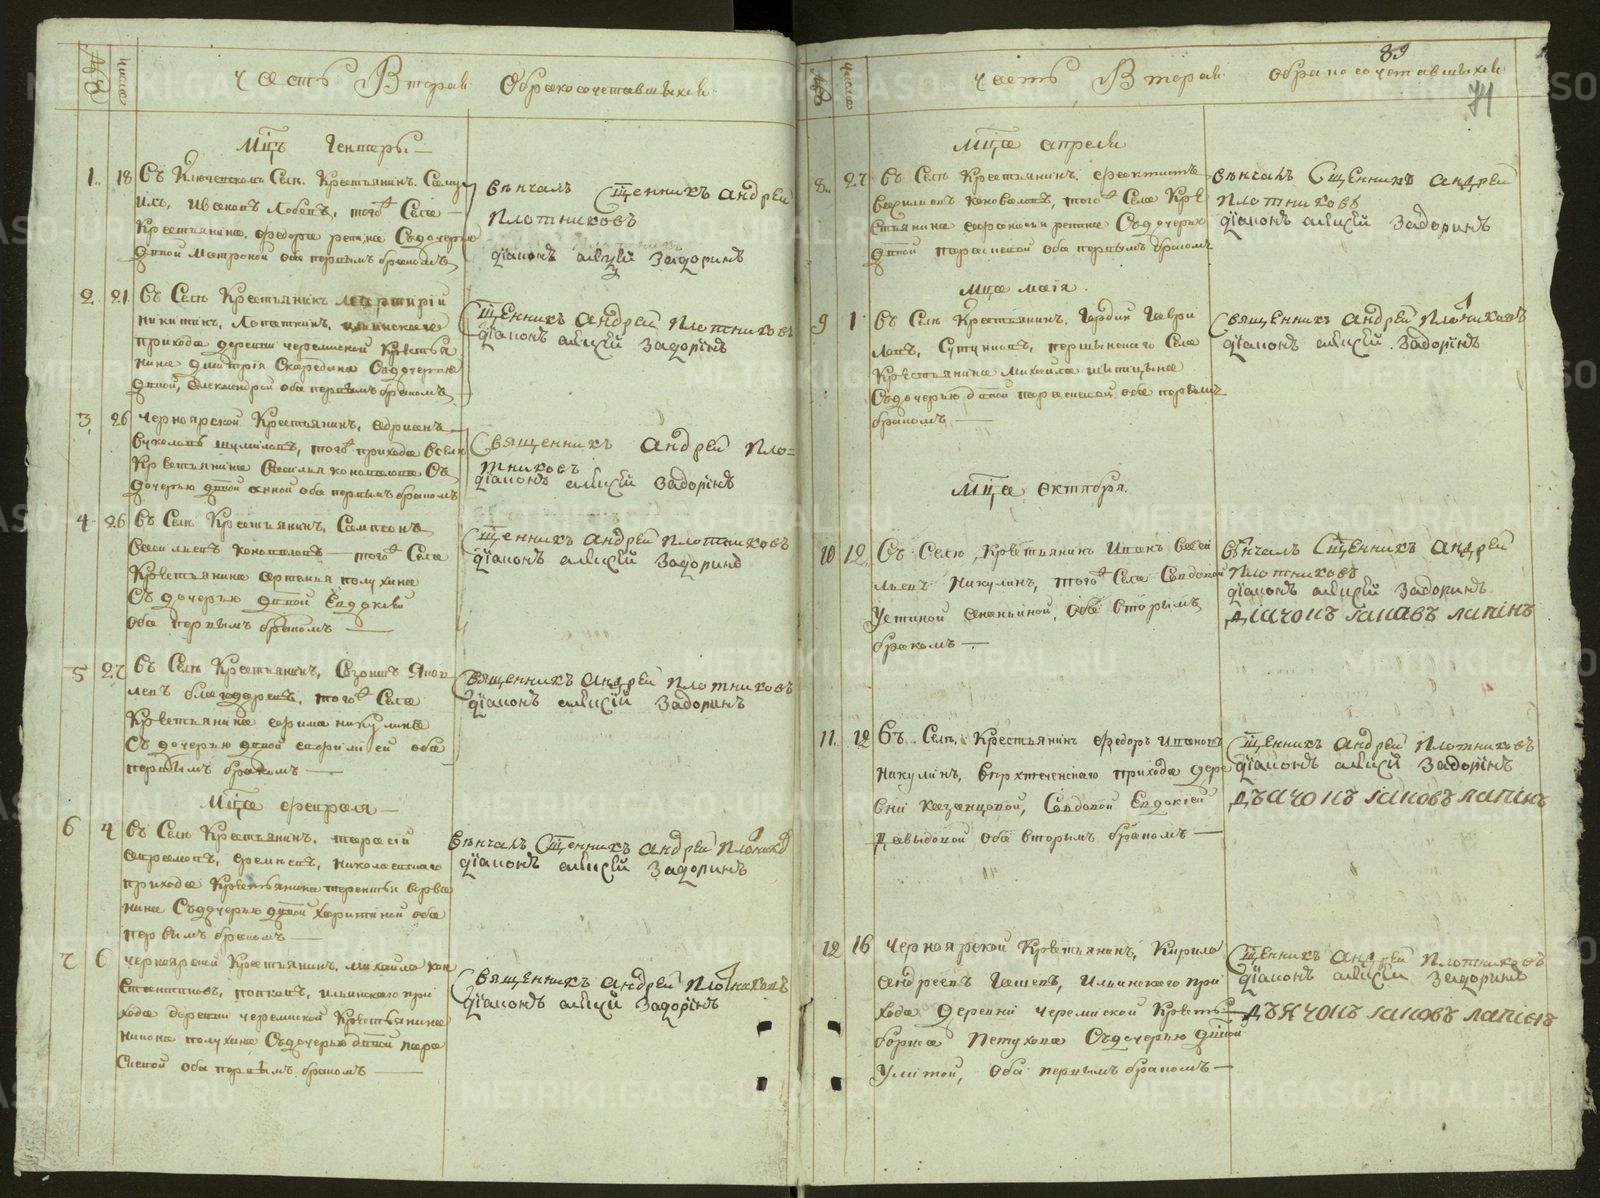 часть Вторая О бракосочетавшихся
числа
Мцъ Генварь
1. 18 Въ Ключевскомъ Селе. Крестьянинъ. Самуи
илъ, Ивановъ Лобовъ, того Села
Крестьянина. Федора репина Съдочерью
девкой Матроной оба первымъ бракомъ
венчалъ Сщенникъ андрей
плотниковъ
діаконъ алеѯій Задоринъ
2. 21. въ Селе Крестьянинъ мартирій
никитинъ, Лопаткинъ, ильинскаго
прихода деревни черемиской Крестья
нина Дмитрія Скаредина Съдочерью
девкой, Александрой оба первымъ бракомъ
Сщенникъ андрей плотниковъ
діаконъ алеѯій Задоринъ
3. 26 черноярской Крестьянинъ, Адрианъ
вуколовъ шумиловъ, того прихода
Крестьянина Василья коновалова Съ
дочерью девкой анной оба первымъ бракомъ
Священникъ андрей пло-
тниковъ
діаконъ алеѯій Задоринъ
4. 26 въ Селе Крестьянинъ, Сампсонъ
Васильевъ Коноваловъ того Села
Крестьянина артемья полухина
Съ дочерью девкой Евдокией
оба первымъ бракомъ
Сщенникъ андрей плотниковъ
діаконъ алеѯій Задоринъ
5 27 въ Селе Крестьянинъ, Яков
левъ благодаревъ, того Села
Крестьянина ефима никулина
Съ дочерью девкой оба
первымъ бракомъ
Священникъ андрей плотниковъ
діаконъ алеѯій Задоринъ
Мца февраля
6 4 въ Селе Крестьянинъ. тарасій
еремеевъ, николаевскаго
прихода Крестьянина терентья
нина Съдочерью девкой харитиной оба
первымъ бракомъ
венчалъ Сщенникъ андрей плотников
діаконъ алеѯій Задоринъ
7 6 черноярской Крестьянинъ, михайло кон
стантиновъ, поповъ, ильинскаго при
хода деревни черемиской Крестьянина
никона полухина Съдочерью девкой пара
Скевой оба первымъ бракомъ
Священникъ андрей плотниковъ
діаконъ алеѯій Задоринъ
89
часть Вторая О бракосочетавшихся
71
числа
Мца апреля
8. 27 въ Селе Крестьянинъ, феоктистъ
васильевъ коноваловъ, того Села Кре
стьянина афанасья репина Съдочерью
девкой параскевой оба первымъ бракомъ
венчалъ Сщенникъ андрей
плотниковъ
діаконъ алеѯій Задоринъ
Мца маія.
9 1 въ Селе Крестьянинъ. Гордий Гаври
ловъ, Сутунковъ, першинскаго Села
Крестьянина михайла шипицына
Съдочерью девкой параскевой оба первымъ
бракомъ
Священникъ андрей плотниковъ
діаконъ алеѯій. Задорінъ
Мца октября.
10 12. Въ Селе, Крестьянинъ Иванъ Васи
льевъ Никулинъ, того Села Совдовой
Устиной Ананьиной, оба вторымъ
бракомъ
венчалъ Сщенникъ андрей
плотниковъ
діаконъ алеѯій Задоринъ
Дячокъ іаковъ лапінъ
11. 12 Въ Селе, Крестьянинъ Федоръ Ивановъ
никулинъ, прихода дере
вни Казанцовой, Совдовой Евдокіей
Давыдовой оба вторымъ бракомъ
Сщенникъ андрей плотниковъ
діаконъ алеѯій Задорінъ
дьячокъ іаковъ лапінъ
12 16 Черноярской Крестьянинъ, Кирило
андреевъ Гашевъ, Ильинскаго при
хода Деревни Черемиской Крестья
бориса Петухова Съдочерью девкой
Улитой, оба первымъ бракомъ
Сщенникъ андрей плотниковъ
діаконъ алеѯій Задоринъ
дьячокъ іаковъ лапінъ
METRIKI.GASO-URAL.RU